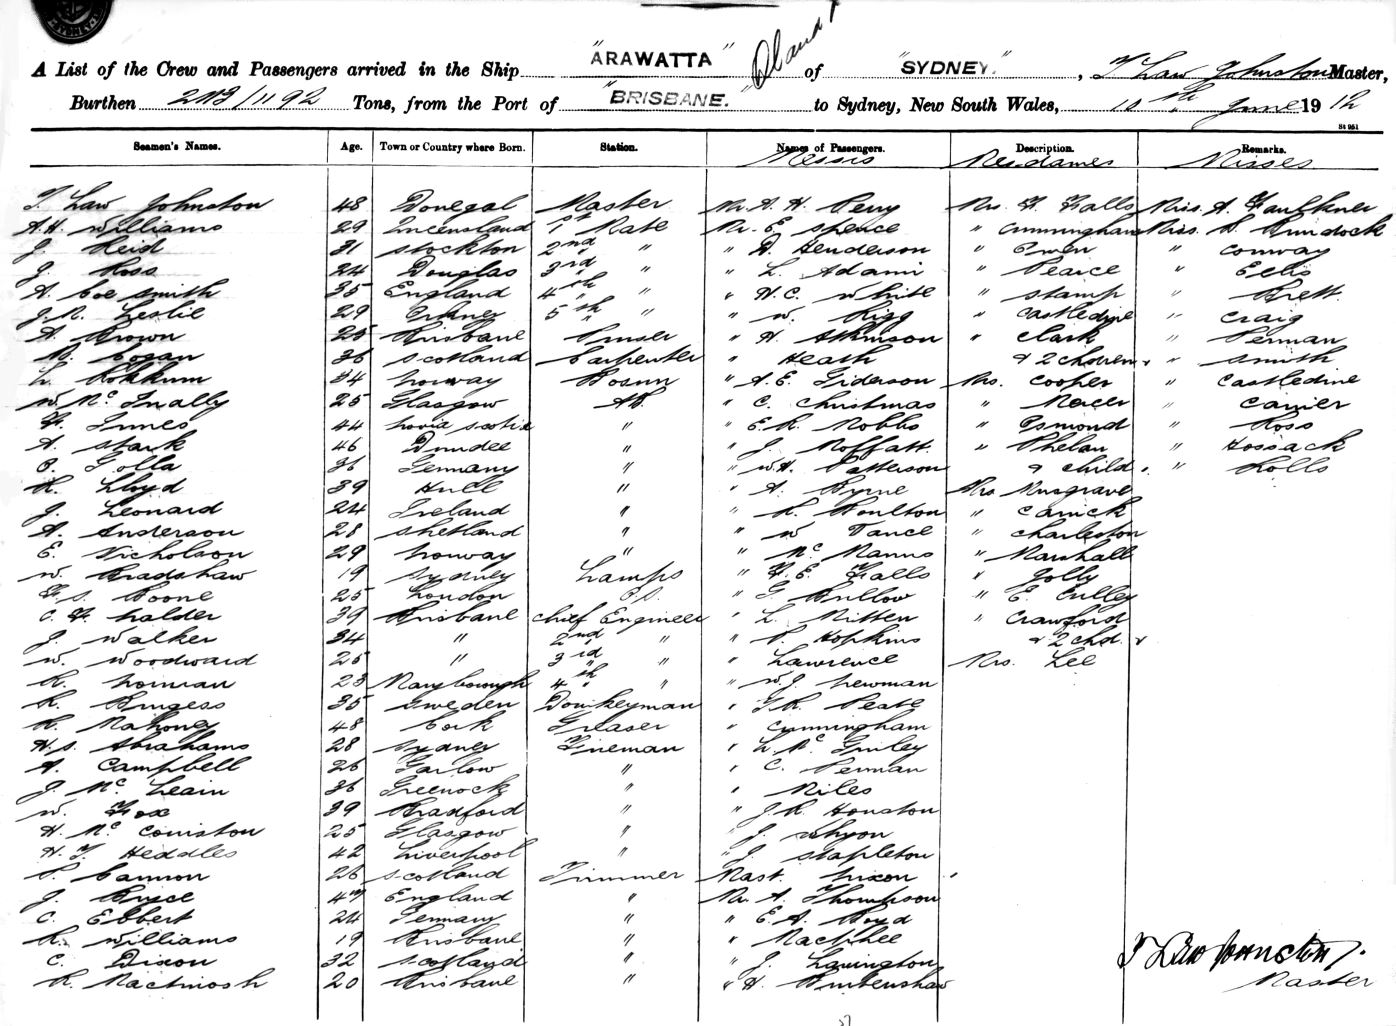 SYDNEY
A List of the Crew and Passengers arrived in the Ship "ARAWATTA" of "SYDNEY", T Law Johnston Master,
Burthen Tons, from the Port of "BRISBANE." to Sydney, New South Wales, 10th June 1912
St 951
Seamen's Names. Age. Town or Country where Born. Station. Names of Passengers. Description. Remarks.
Messrs Mesdames Misses
T. Law Johnston 48 Donegal Master Mr. A. H. Perry Mrs. F. Falls Miss. A. Faulkner
A.H. Williams 29 Queensland 1st Mate Mr. E. Spence " Cunningham Miss. R. Murdock
J. Reid 31 Stockton 2nd " " A. Henderson " Owen " Conway
J. Ross 24 Douglas 3rd " " L. Adami " Pearce " Eelis
A. Coe Smith 35 England 4th " " H.C. White " Stamp " Brett
J.R. Leslie 29 Orkney 5th " " W. Rigg " Castledine " Craig
A. Brown 25 Brisbane Purser " H. Atkinson " Clark " Perman
M. Cogan 36 Scotland Carpenter " Heath & 2 children " Smith
L. 34 Norway Bosun " A.E. Giderson Mrs. Cooper " Castledine
W. Mc Inally 25 Glasgow AB. " C. Christmas " Mercer " Carrier
F. Innes 44 Novia Scotia " " E.R. Hobbs " Esmond " Ross
A. Stark 46 Dundee " " J. Moffatt " Phelan " Hossack
C. Golla 36 Germany " " W.A. Patterson & child " Rolls
R. Lloyd 39 Hull " " A. Byrne Mrs Musgrave
J. Leonard 24 Ireland " " R. Boulton " Carrick
A. Anderson 28 Shetland " " W Vance " Charleston
E. Nicholson 29 Norway " " Mc Manns " Marshall
W. Bradshaw 19 Sydney Lamps " F.E. Falls " Jolly
F.S. Boone 25 London O.S. " G Bullow " E. Culley
C. F. Halder 39 Brisbane Chief Engineer " L. Mitten " Crawford
J. Walker 34 " 2nd " " P. Hopkins & 2 chd.
W. Woodward 25 " 3rd " " Lawrence Mrs. Lee
R. Norman 23 Maryborough 4th " " W.J. Newman
R. Burgess 35 Sweden Donkeyman " G.R. Peate
R. Mahoney 48 Cork Greaser " Cunningham
H.S. Abrahams 28 Sydney Fireman " L. Mc Ginley
A. Campbell 26 Garlow " " C. Perman
J. Mc Leain 36 Greenock " " Miles
W. Fox 39 Bradford " " J.R. Houston
H. Mc Coniston 25 Glasgow " " J. Whyon
H. J. Heddles 42 Liverpool " " J. Stapleton
P. Cannon 26 Scotland Trimmer Mast. Nixon
J. Bruce England " Mr. A. Thompson
C. Ebbert 24 Germany " " E.A. Boyd
R. Williams 19 Brisbane " " MacPhee
C. Dixon 32 Scotland " " J. Lavington
R. Macintosh 20 Brisbane " " H. Birkenshaw
T Law Johnston
Master